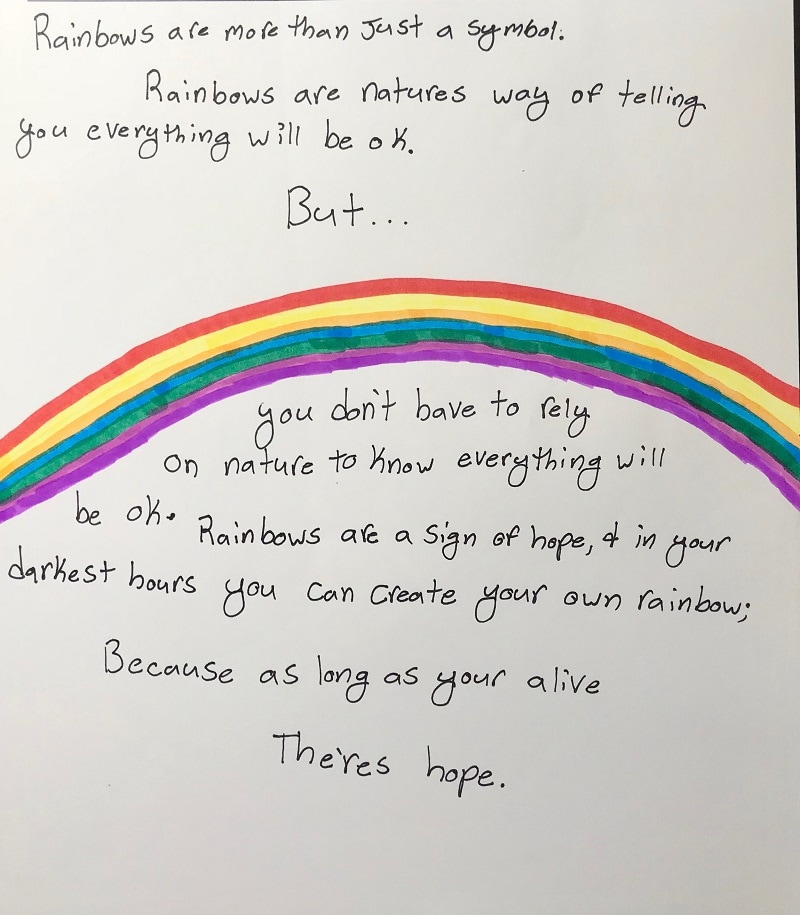 Rainbows are more than Just a symbol.
Rainbows are natures way of telling
you everything will be ok.
But...
you don't have to rely
on nature to know everything will
be ok. Rainbows are a sign of hope, & in your
darkest hours you can create your own rainbow;
Because as long as your alive
The'res hope.